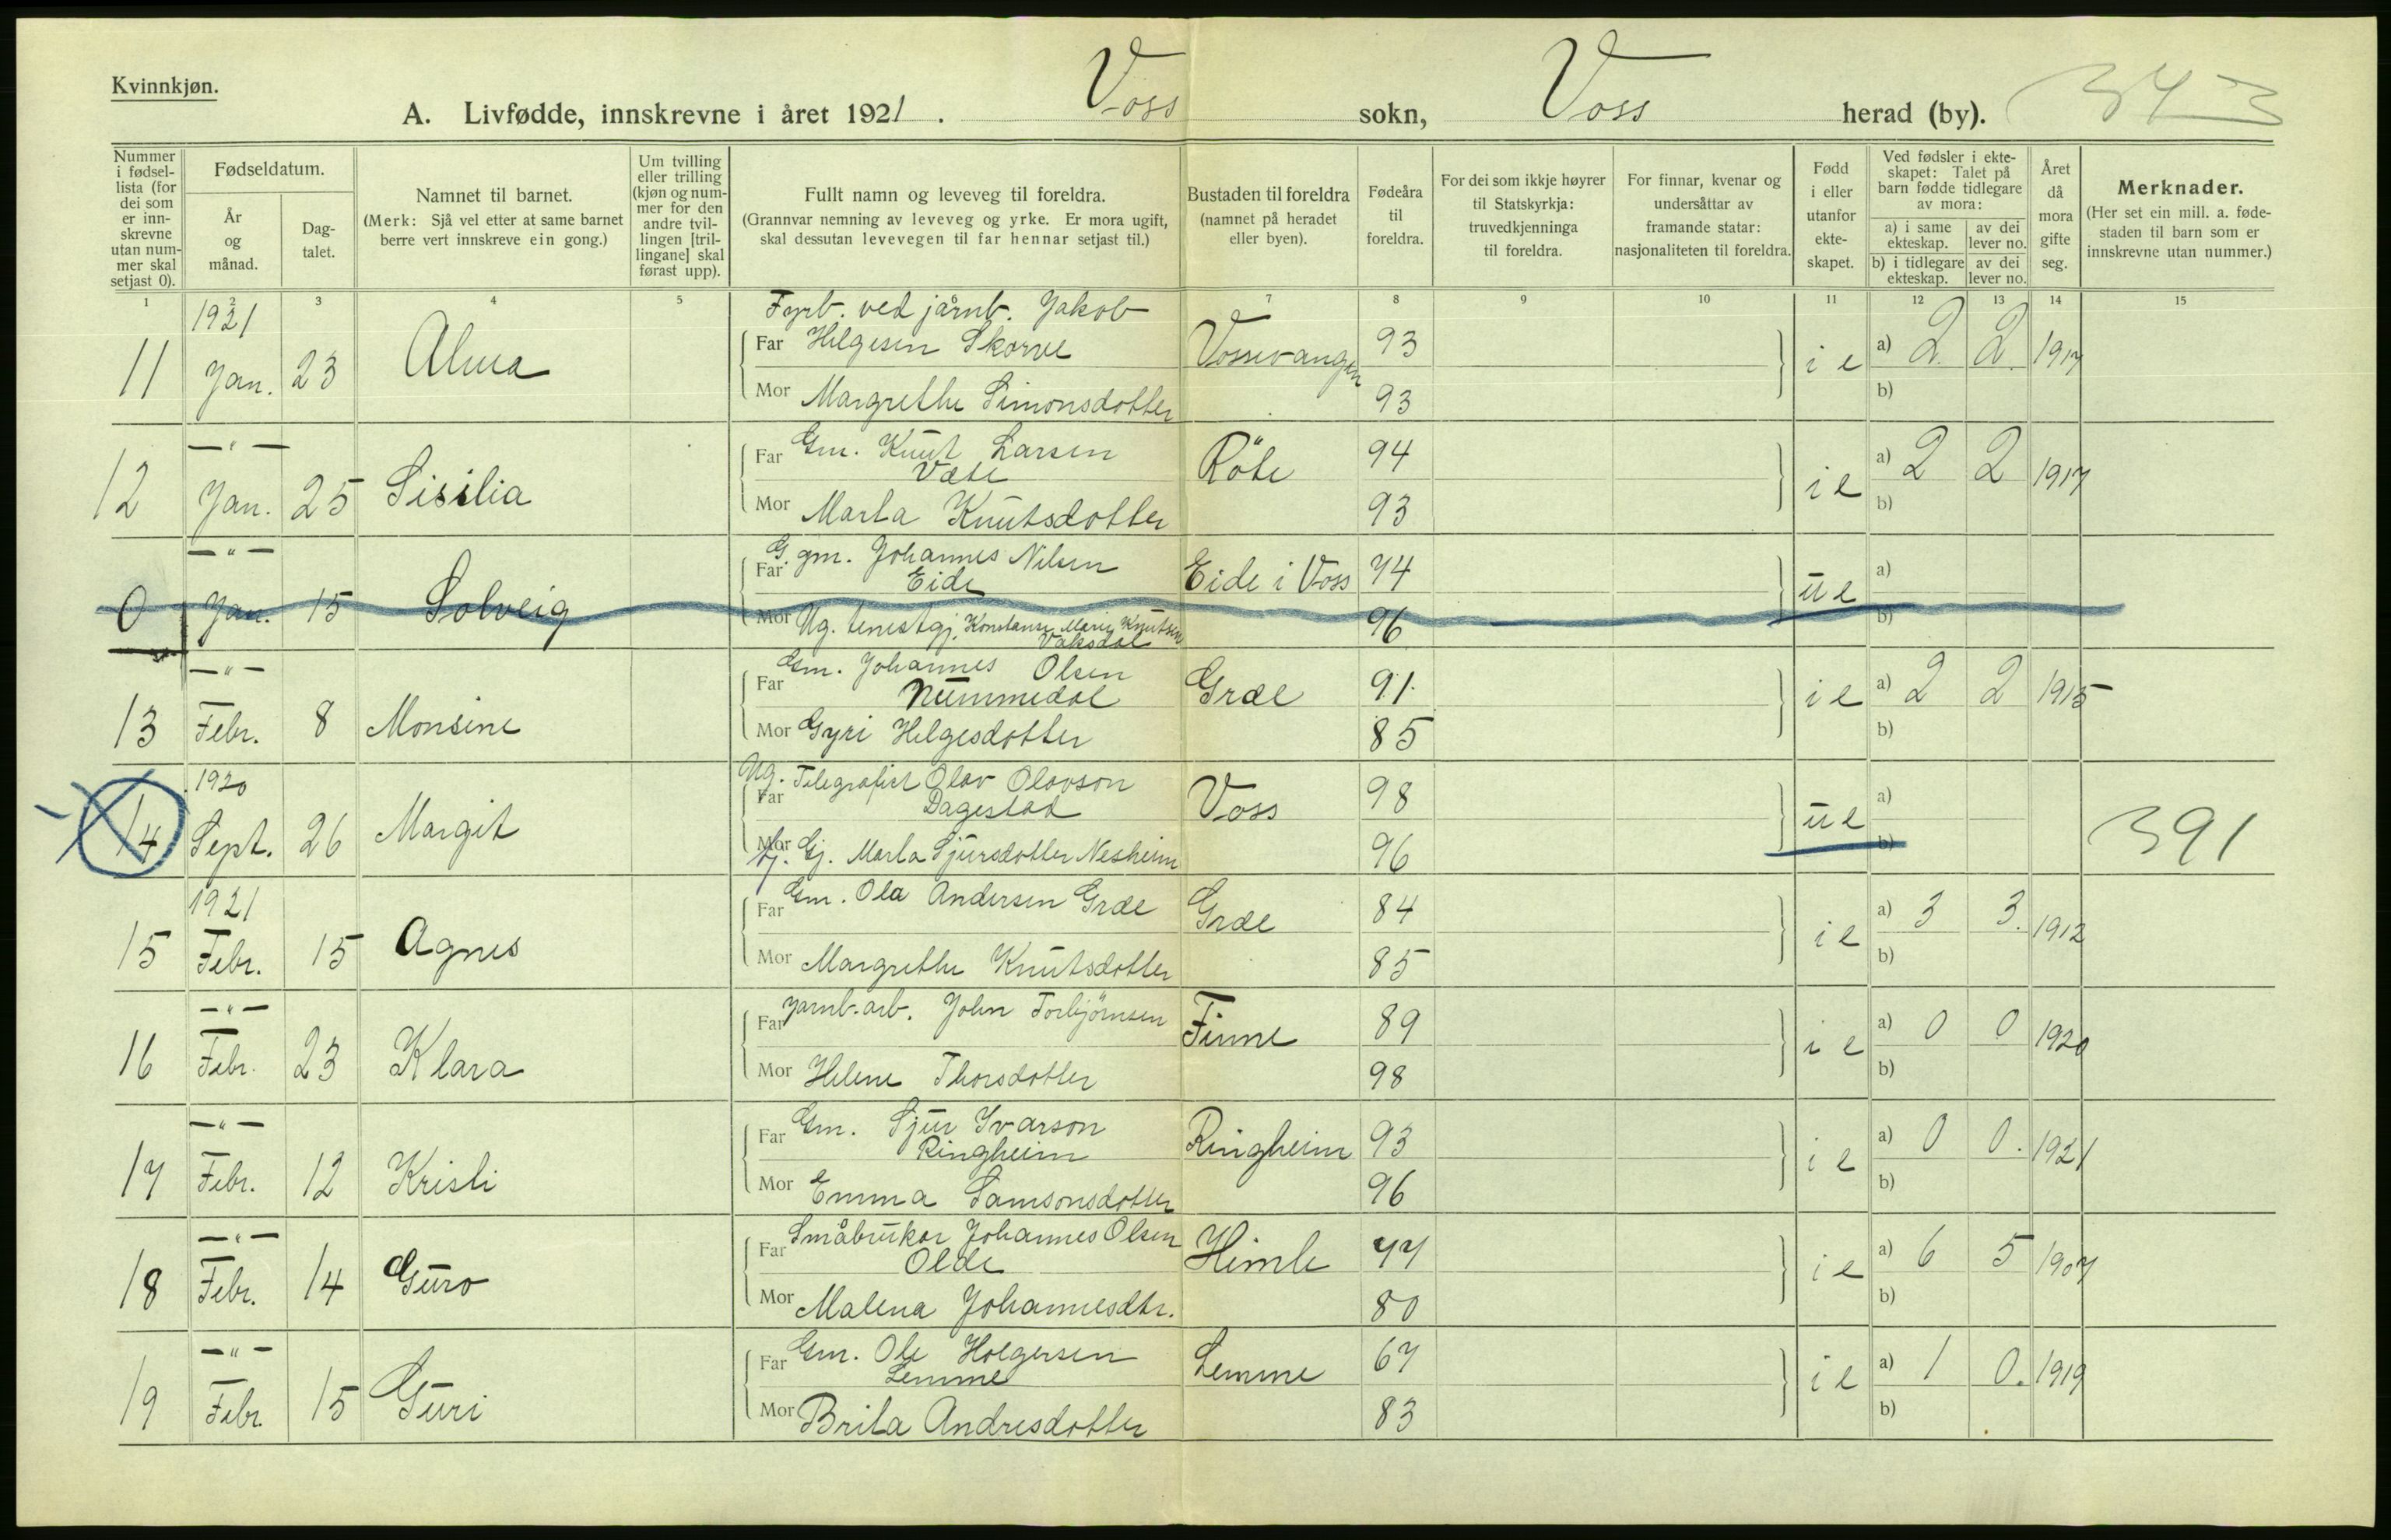 Kvinnkjøn.
A. Livfødde, innskrevne i året 1921. Voss sokn, Voss herad (by). 343
Nummer i fødsel-lista (for dei som er inn-skrevne utan num-mer skal setjast 0).
Fødseldatum.
År og månad.
Dag-talet.
Namnet til barnet.
(Merk: Sjå vel etter at same barnet berre vert innskreve ein gong.)
Um tvilling eller trilling (kjøn og num-mer for den andre tvil-lingen [tril-lingane] skal førast upp).
Fullt namn og leveveg til foreldra.
(Grannvar nemning av leveveg og yrke. Er mora ugift, skal dessutan levevegen til far hennar setjast til.)
Bustaden til foreldra (namnet på heradet eller byen).
Fødeåra til foreldra.
For dei som ikkje høyrer til Statskyrkja: truvedkjenninga til foreldra.
For finnar, kvenar og undersåttar av framande statar: nasjonaliteten til foreldra.
Fødd i eller utanfor ekte-skapet.
Ved fødsler i ekte-skapet: Talet på barn fødde tidlegare av mora:
a) i same ekteskap. av dei lever no.
b) i tidlegare ekteskap. av dei lever no.
Året då mora gifte seg.
Merknader.
(Her set ein mill. a. føde-staden til barn som er innskrevne utan nummer.)
1 2 3 4 5 7 8 9 10 11 12 13 14 15
1921 Fyrb. ved jårnb. Jakob
11 Jan. 23 Alma Far Helgesen Skorve Vossevangen 93 i e a) 2. 2. 1917
Mor Margrethe Simonsdotter 93 b)
—"— Far Gm. Knut Larsen
12 Jan. 25 Sisilia Væte Röte 94 i e a) 2 2 1917
Mor Marta Knutsdotter 93 b)
—"— G. gm. Johannes Nilsen
0 Jan. 15 Solveig Far Eide Eide i Voss 74 u e a)
Mor Ug. tenestgj. Konstanse Marie Knutsen 96 b)
Vaksdal
—"— Far Gm. Johannes Olsen
13 Febr. 8 Monsine Nummedal Græe 91. i e a) 2 2 1915
Mor Gyri Helgesdotter 85 b)
1920 Ug. Telegrafist Olav Olavson
14 Sept. 26 Margit Far Dagestad Voss 98 u e a) 391
Mor tj. Gj. Marta Sjursdotter Nesheim 96 b)
1921 Far Gm. Ola Andersen Græe
15 Febr. 15 Agnes Græe 84 i e a) 3 3. 1912
Mor Margrethe Knutsdotter 85 b)
—"— Far Jarnb.arb. John Torbjörnsen
16 Febr. 23 Klara Finne 89 i e a) 0 0 1920
Mor Helene Thorsdotter 98 b)
—"— Far Gm. Sjur Ivarson
17 Febr. 12 Kristi Ringheim Ringheim 93 i e a) 0 0. 1921
Mor Emma Samsonsdotter 96 b)
—"— Far Småbrukar Johannes Olsen
18 Febr. 14 Guro Olde Himle 77 i e a) 6 5 1907
Mor Malena Johannesdtr. 80 b)
—"— Far Gm. Ole Holgersen
19 Febr. 15 Guri Lemme Lemme 67 i e a) 1 0. 1919
Mor Brita Andresdotter 83 b)